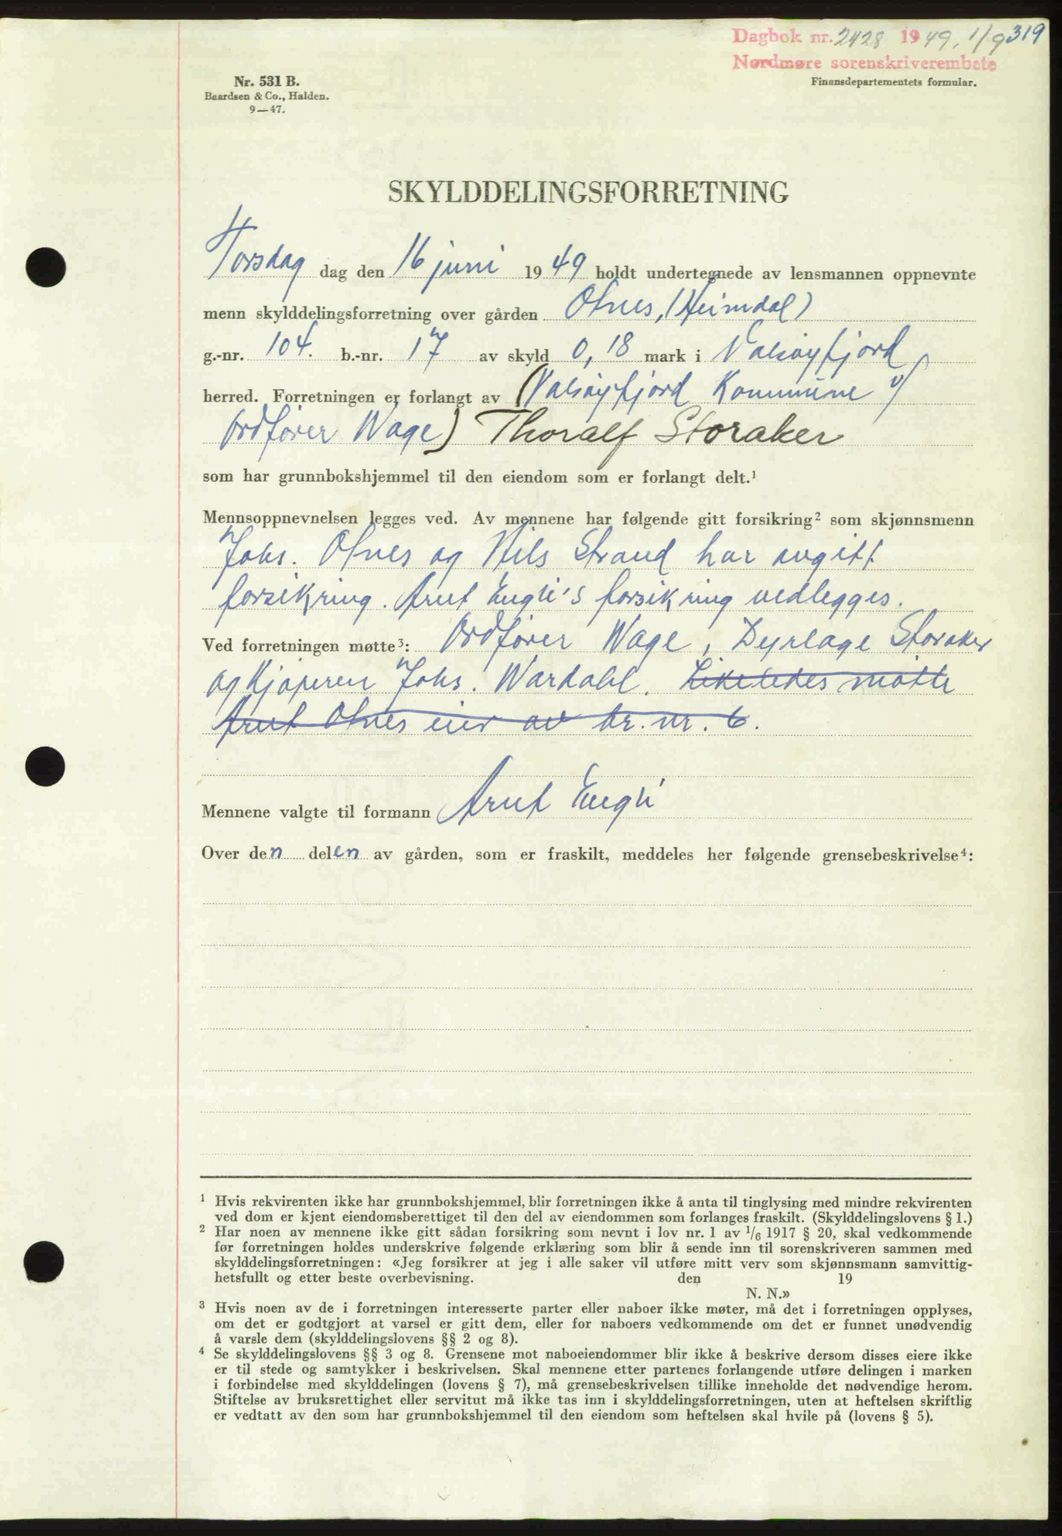 Dagbok nr. 2428 1949. 1/9 319
Nordmøre sorenskriverembete
Nr. 531 B.
Baardsen & Co., Halden.
9—47.
Finansdepartementets formular.
SKYLDDELINGSFORRETNING
Torsdag dag den 16 juni 1949 holdt undertegnede av lensmannen oppnevnte
menn skylddelingsforretning over gården Otnes, (Heimdal)
g.-nr. 104. b.-nr. 17 av skyld 0,18 mark i Valsøyfjord
herred. Forretningen er forlangt av (Valsøyfjord Kommune v/
Ordfører Wage) Thoralf Storaker
som har grunnbokshjemmel til den eiendom som er forlangt delt.¹
Mennsoppnevnelsen legges ved. Av mennene har følgende gitt forsikring² som skjønnsmenn
Johs. Otnes og Nils Strand har avgitt
forsikring. Arnt Engli's forsikring vedlegges.
Ved forretningen møtte³: Ordfører Wage, Dyrlæge Storaker
og Kjøperen Johs. Wardahl. Likeledes møtte
Arnt Otnes eier av br. nr. 6.
Mennene valgte til formann Arnt Engli
Over den delen av gården, som er fraskilt, meddeles her følgende grensebeskrivelse⁴:
¹ Hvis rekvirenten ikke har grunnbokshjemmel, blir forretningen ikke å anta til tinglysing med mindre rekvirenten
ved dom er kjent eiendomsberettiget til den del av eiendommen som forlanges fraskilt. (Skylddelingslovens § 1.)
² Har noen av mennene ikke gitt sådan forsikring som nevnt i lov nr. 1 av 1/6 1917 § 20, skal vedkommende
før forretningen holdes underskrive følgende erklæring som blir å sende inn til sorenskriveren sammen med
skylddelingsforretningen: «Jeg forsikrer at jeg i alle saker vil utføre mitt verv som skjønnsmann samvittig-
hetsfullt og etter beste overbevisning. den 19
N. N.»
³ Hvis noen av de i forretningen interesserte parter eller naboer ikke møter, må det i forretningen opplyses,
om det er godtgjort at varsel er gitt dem, eller for naboers vedkommende om det er funnet unødvendig
å varsle dem (skylddelingslovens §§ 2 og 8).
⁴ Se skylddelingslovens §§ 3 og 8. Grensene mot naboeiendommer blir ikke å beskrive dersom disses eiere ikke
er til stede og samtykker i beskrivelsen. Skal mennene etter partenes forlangende utføre delingen i marken
i forbindelse med skylddelingen (lovens § 7), må grensebeskrivelsen tillike inneholde det nødvendige herom.
Stiftelse av bruksrettighet eller servitut må ikke tas inn i skylddelingsforretningen, uten at heftelsen skriftlig
er vedtatt av den som har grunnbokshjemmel til den eiendom som heftelsen skal hvile på (lovens § 5).